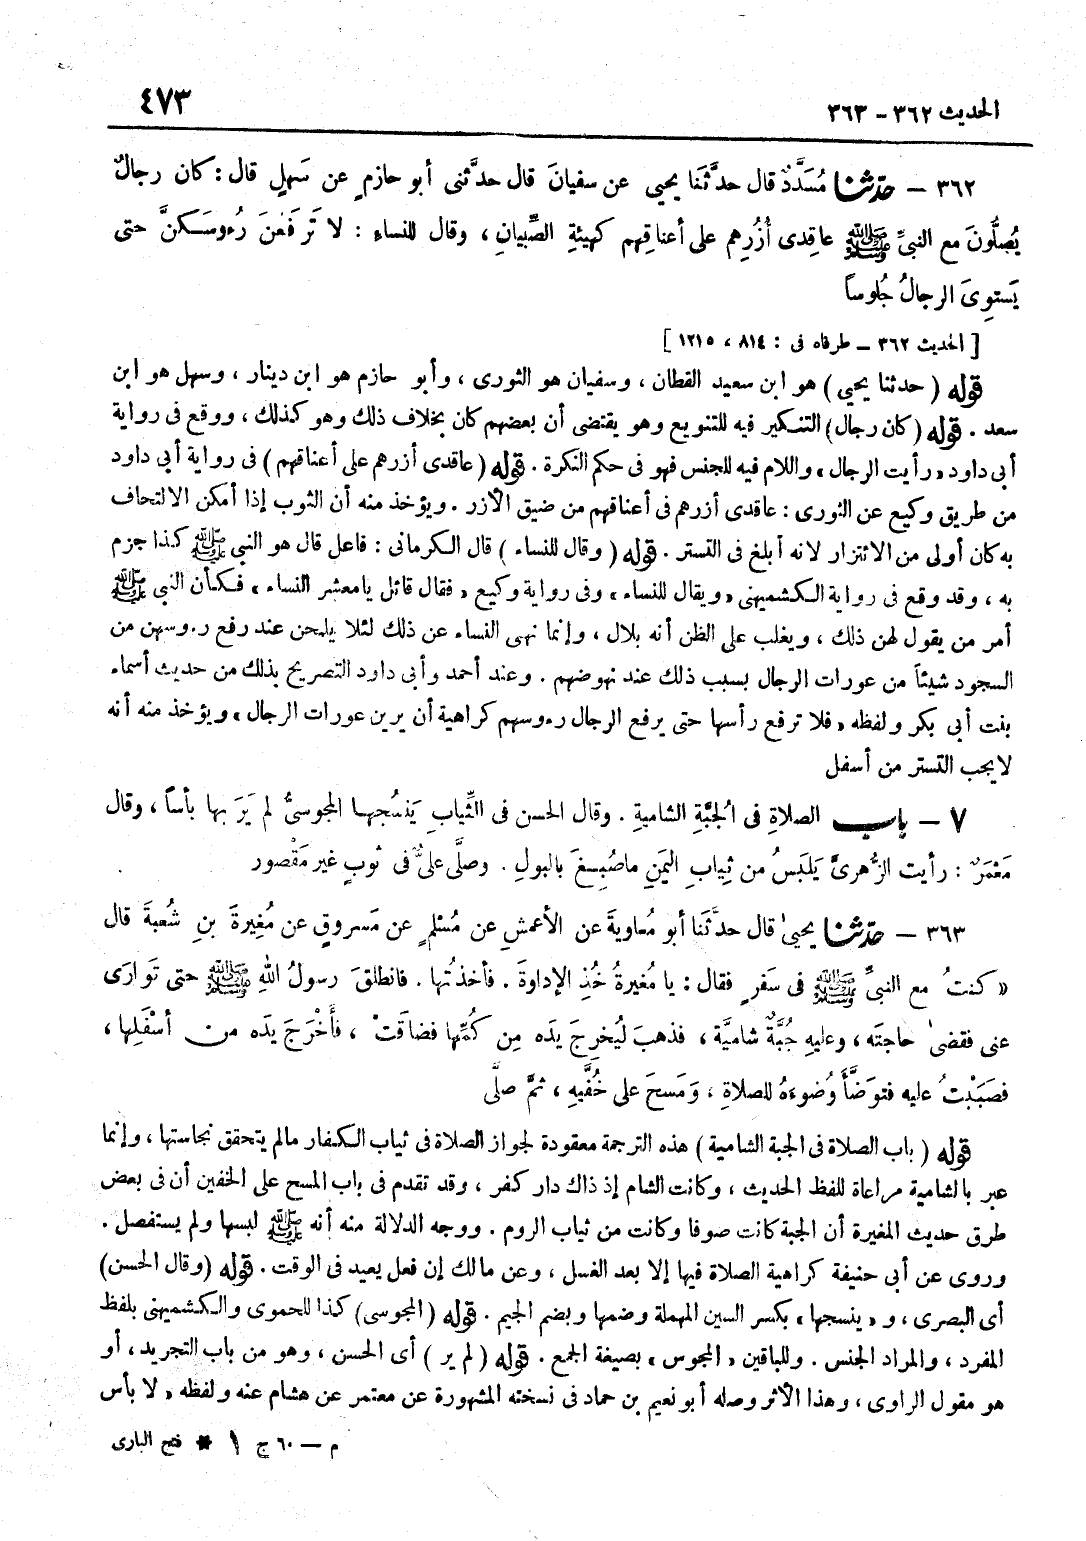 الحديث ٣٦٢ - ٣٦٣
٤٧٣
٣٦٢ – حدّثنا مُسَدَّدٌ قال حدَّثَنا يحيى عن سفيانَ قال حدَّثنى أبو حازمٍ عن سَهلٍ قال : كان رجالٌ
يُصلُّونَ مع النبىِّ ﷺ عاقِدى أُزُرِهم على أعناقِهم كهيئةِ الصِّبيانِ ، وقال للنساءِ : لا تَرفَعْنَ رُءوسَكنَّ حتى
يَستوِىَ الرجالُ جُلوساً
[ الحديث ٣٦٢ – طرفاه فى : ٨١٤ ، ١٢١٥ ]
قوله ( حدثنا يحيى ) هو ابن سعيد القطان ، وسفيان هو الثورى ، وأبو حازم هو ابن دينار ، وسهل هو ابن
سعد . قوله (كان رجال) التنكير فيه للتنويع وهو يقتضى أن بعضهم كان بخلاف ذلك وهو كذلك ، ووقع فى رواية
أبى داود « رأيت الرجال » واللام فيه للجنس فهو فى حكم النكرة . قوله ( عاقدى أزرهم على أعناقهم ) فى رواية أبى داود
من طريق وكيع عن الثورى : عاقدى أزرهم فى أعناقهم من ضيق الأزر . ويؤخذ منه أن الثوب إذا أمكن الالتحاف
به كان أولى من الائتزار لانه أبلغ فى التستر . قوله ( وقال للنساء ) قال الكرمانى : فاعل قال هو النبى ﷺ كذا جزم
به ، وقد وقع فى رواية الكشميهنى « ويقال للنساء » وفى رواية وكيع « فقال قائل يامعشر النساء » فكأن النبى ﷺ
أمر من يقول لهن ذلك ، ويغلب على الظن أنه بلال ، وإنما نهى النساء عن ذلك لئلا يلمحن عند رفع رءوسهن من
السجود شيئاً من عورات الرجال بسبب ذلك عند نهوضهم . وعند أحمد وأبى داود التصريح بذلك من حديث أسماء
بنت أبى بكر ولفظه « فلا ترفع رأسها حتى يرفع الرجال رءوسهم كراهية أن يرين عورات الرجال » ويؤخذ منه أنه
لا يجب التستر من أسفل
٧ – باب الصلاةِ فى الجُبَّةِ الشاميةِ . وقال الحسن فى الثِّيابِ يَنسُجها المجوسىُّ لم يَرَ بها بأساً ، وقال
مَعْمَرٌ : رأيت الزُّهرىَّ يَلبَسُ من ثِيابِ اليَمَنِ ماصُبِغَ بالبولِ . وصلَّى علىٌّ فى ثوبٍ غيرِ مَقْصور
٣٦٣ – حدّثنا يحيىٰ قال حدَّثَنا أبو مُعاويةَ عن الأعمشِ عن مُسْلمٍ عن مَسروقٍ عن مُغيرةَ بنِ شُعبةَ قال
« كنتُ مع النبىِّ ﷺ فى سَفرٍ فقال : يا مُغيرةُ خُذِ الإداوةَ . فأخذتُها . فانطلقَ رسولُ اللهِ ﷺ حتى تَوارَى
عنى فقضىٰ حاجتَه ، وعليهِ جُبَّةٌ شاميَّة ، فذهبَ ليُخرِجَ يدَه مِن كُمِّها فضاقَتْ ، فأَخْرَجَ يدَه من أسْفَلِها ،
فصَبَبْتُ عليه فتوَضَّأَ وُضوءَهُ للصلاةِ ، وَمَسحَ على خُفَّيهِ ، ثمَّ صلَّى
قوله ( باب الصلاة فى الجبة الشامية ) هذه الترجمة معقودة لجواز الصلاة فى ثياب الكفار مالم يتحقق نجاستها ، وإنما
عبر بالشامية مراعاة للفظ الحديث ، وكانت الشام إذ ذاك دار كفر ، وقد تقدم فى باب المسح على الخفين أن فى بعض
طرق حديث المغيرة أن الجبة كانت صوفا وكانت من ثياب الروم . ووجه الدلالة منه أنه ﷺ لبسها ولم يستفصل .
وروى عن أبى حنيفة كراهية الصلاة فيها إلا بعد الغسل ، وعن مالك إن فعل يعيد فى الوقت . قوله (وقال الحسن)
أى البصرى ، و « ينسجها » بكسر السين المهملة وضمها وبضم الجيم . قوله (المجوسى) كذا للحموى والكشميهنى بلفظ
المفرد ، والمراد الجنس . وللباقين « المجوس » بصيغة الجمع . قوله ( لم ير ) أى الحسن ، وهو من باب التجريد ، أو
هو مقول الراوى ، وهذا الأثر وصله أبو نعيم بن حماد فى نسخته المشهورة عن معتمر عن هشام عنه ولفظه « لا بأس
م – ٦٠ ج ١ * فتح البارى